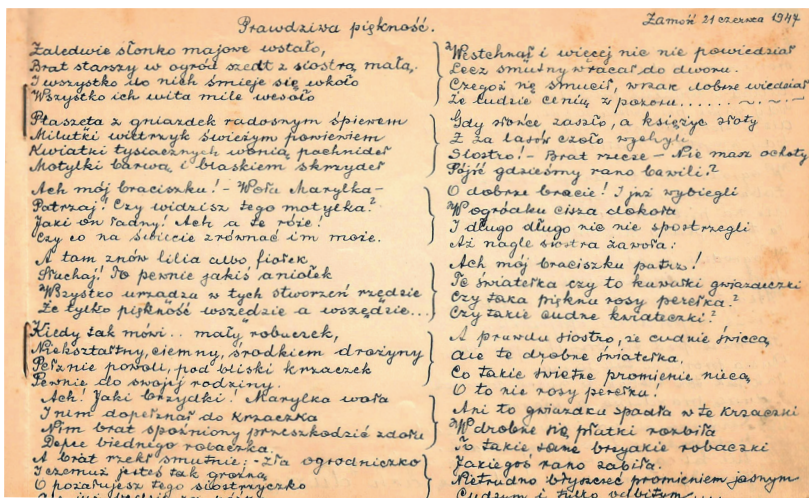 Prawdziwa piękność.
Zamoń 21 czerwca 1947
Zaledwie słonko majowe wstało,
Brat starszy w ogród szedł z siostrą małą,
I wszystko do nich śmieje się wkoło
Wszystko ich wita mile wesoło
Ptaszęta z gniazdek radosnym śpiewem
Milutki wietrzyk świeżym powiewem
Kwiatki tysiącznych wonią pachnideł
Motylki barwą i blaskiem skrzydeł
Ach mój braciszku! - Woła Marylka -
Patrzaj! Czy widzisz tego motylka?
Jaki on ładny! Ach a te róże!
Czy co na świecie zrównać im może.
A tam znów lilia albo fiołek
Słuchaj! To pewnie jakiś aniołek
Wszystko urządza w tych stworzeń rzędzie
Że tylko piękność wszędzie a wszędzie...
Kiedy tak mówi.. mały robaczek,
Niekształtny, ciemny, środkiem drożyny
Pełznie powoli, pod bliski krzaczek
Pewnie do swojej rodziny.
Ach! Jaki brzydki! Marylka woła
I nim dopełznął do krzaczka
Nim brat spóźniony przeszkodzić zdoła
Depce biednego robaczka.
A brat rzekł smutnie: - Zła ogrodniczko
I czemuż jesteś tak groźną
O pożałujesz tego siostrzyczko
Westchnął i więcej nic nie powiedział
Lecz smutny wracał do dworu.
Czegoż się smucił, wszak dobrze wiedział
Że ludzie cenią z pozoru.......
Gdy słońce zaszło, a księżyc złoty
Z za lasów czoło wychylił
Siostro! - Brat rzecze - Nie masz ochoty
Pójść gdzieśmy rano bawili?
O dobrze bracie! I już wybiegli
W ogródku cisza dokoła
I długo długo nic nie spostrzegli
Aż nagle siostra zawoła:
Ach mój braciszku patrz!
Te światełka czy to kawałki gwiazdeczki
Czy taka piękna rosy perełka?
Czy takie cudne kwiateczki?
A prawda siostro, że cudnie świecą
Ale te drobne światełka.
Co takie świetne promienie niecą
O to nie rosy perełka!
Ani to gwiazdka spadła w te krzaczki
W drobne się płatki rozbiła
To takie same brzydkie robaczki
Jakiegoś rano zabiła.
Nietrudno błyszczeć promieniem jasnym
Cudzym i tylko odbitym....